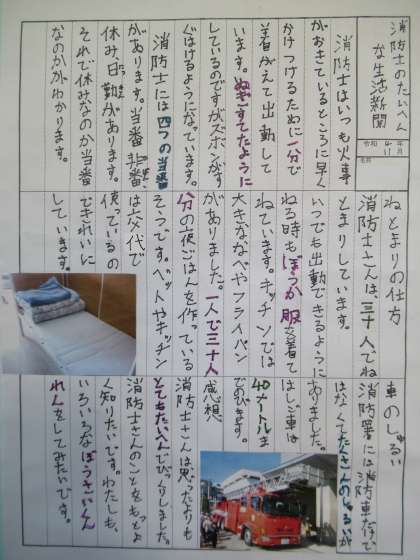 消防士のたいへん
な生活新聞
令和4年
11月
名前
消防士はいつも火事
がおきているところに早く
かけつけるために一分で
着がえて出動して
います。ぬぎすてたように
しているのですがズボンがす
ぐはけるようになっています。
消防士には四つの当番
があります。当番、非番、
休み、日勤があります。
それで休みなのか当番
なのかがわかります。
ねとまりの仕方
消防士さんは三十人でね
とまりしています。
いつでも出動できるように
ねる時もぼうか服を着て
ねています。キッチンでは
大きななべやフライパン
がありました。一人で三十人
分の夜ごはんを作っている
そうです。ベットやキッチン
は交代で
使っているの
できれいに
しています。
車のしゅるい
消防署には消防車だけで
はなくてたくさんのしゅるいが
ありました。
はしご車は
40メートルま
でのびます。
感想
消防士さんは思ったよりも
とてもたいへんでびっくりしました。
消防士さんのことをもっとよ
く知りたいです。わたしも、
いろいろなぼうさいくん
れんをしてみたいです。